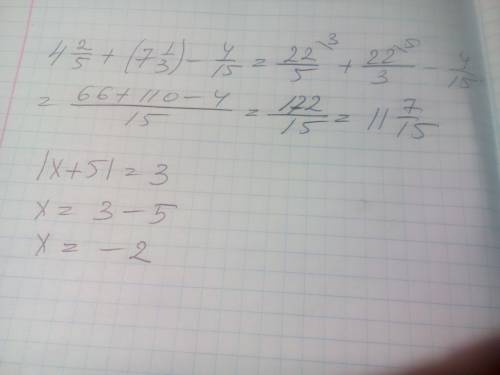 4 2/5 + (7 1/3) - 4/15 = 22/5 \3 + 22/3 \5 - 4/15
= 66 + 110 - 4/15 = 172/15 = 11 7/15
|x+5| = 3
x = 3 - 5
x = - 2